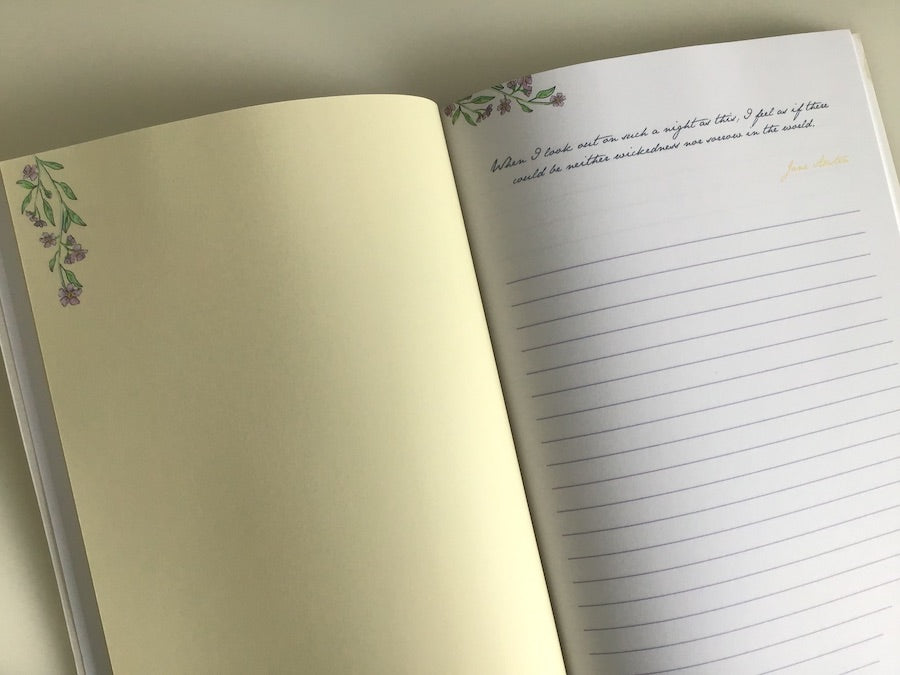 When I look out on such a night as this, I feel as if there
could be neither wickedness nor sorrow in the world.
Jane Austen